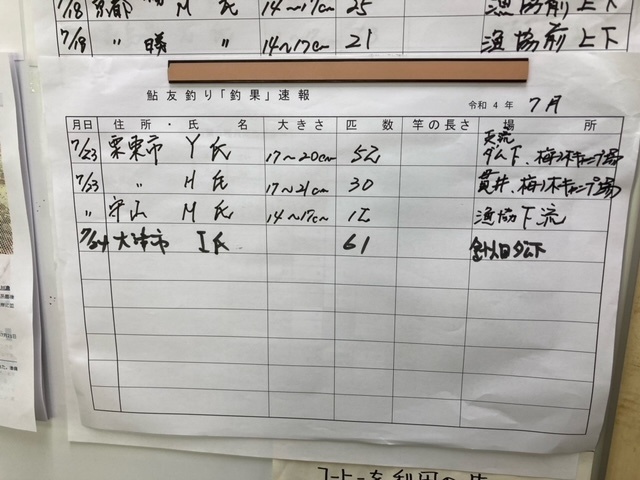 7/18 京都 M 氏 14〜17cm 25 漁協前上下
7/19 〃 〃 14〜17cm 21 漁協前上下
鮎友釣り「釣果」速報
令和4年 7月
月日 住所・氏名 大きさ 匹数 竿の長さ 場所
7/23 栗東市 Y氏 17〜20cm 52 ダム下、梅ノ木キャンプ場
7/23 〃 H氏 17〜21cm 30 貫井、梅ノ木キャンプ場
〃 守山 M氏 14〜17cm 12 漁協下流
7/24 大津市 I氏 61 ダム下